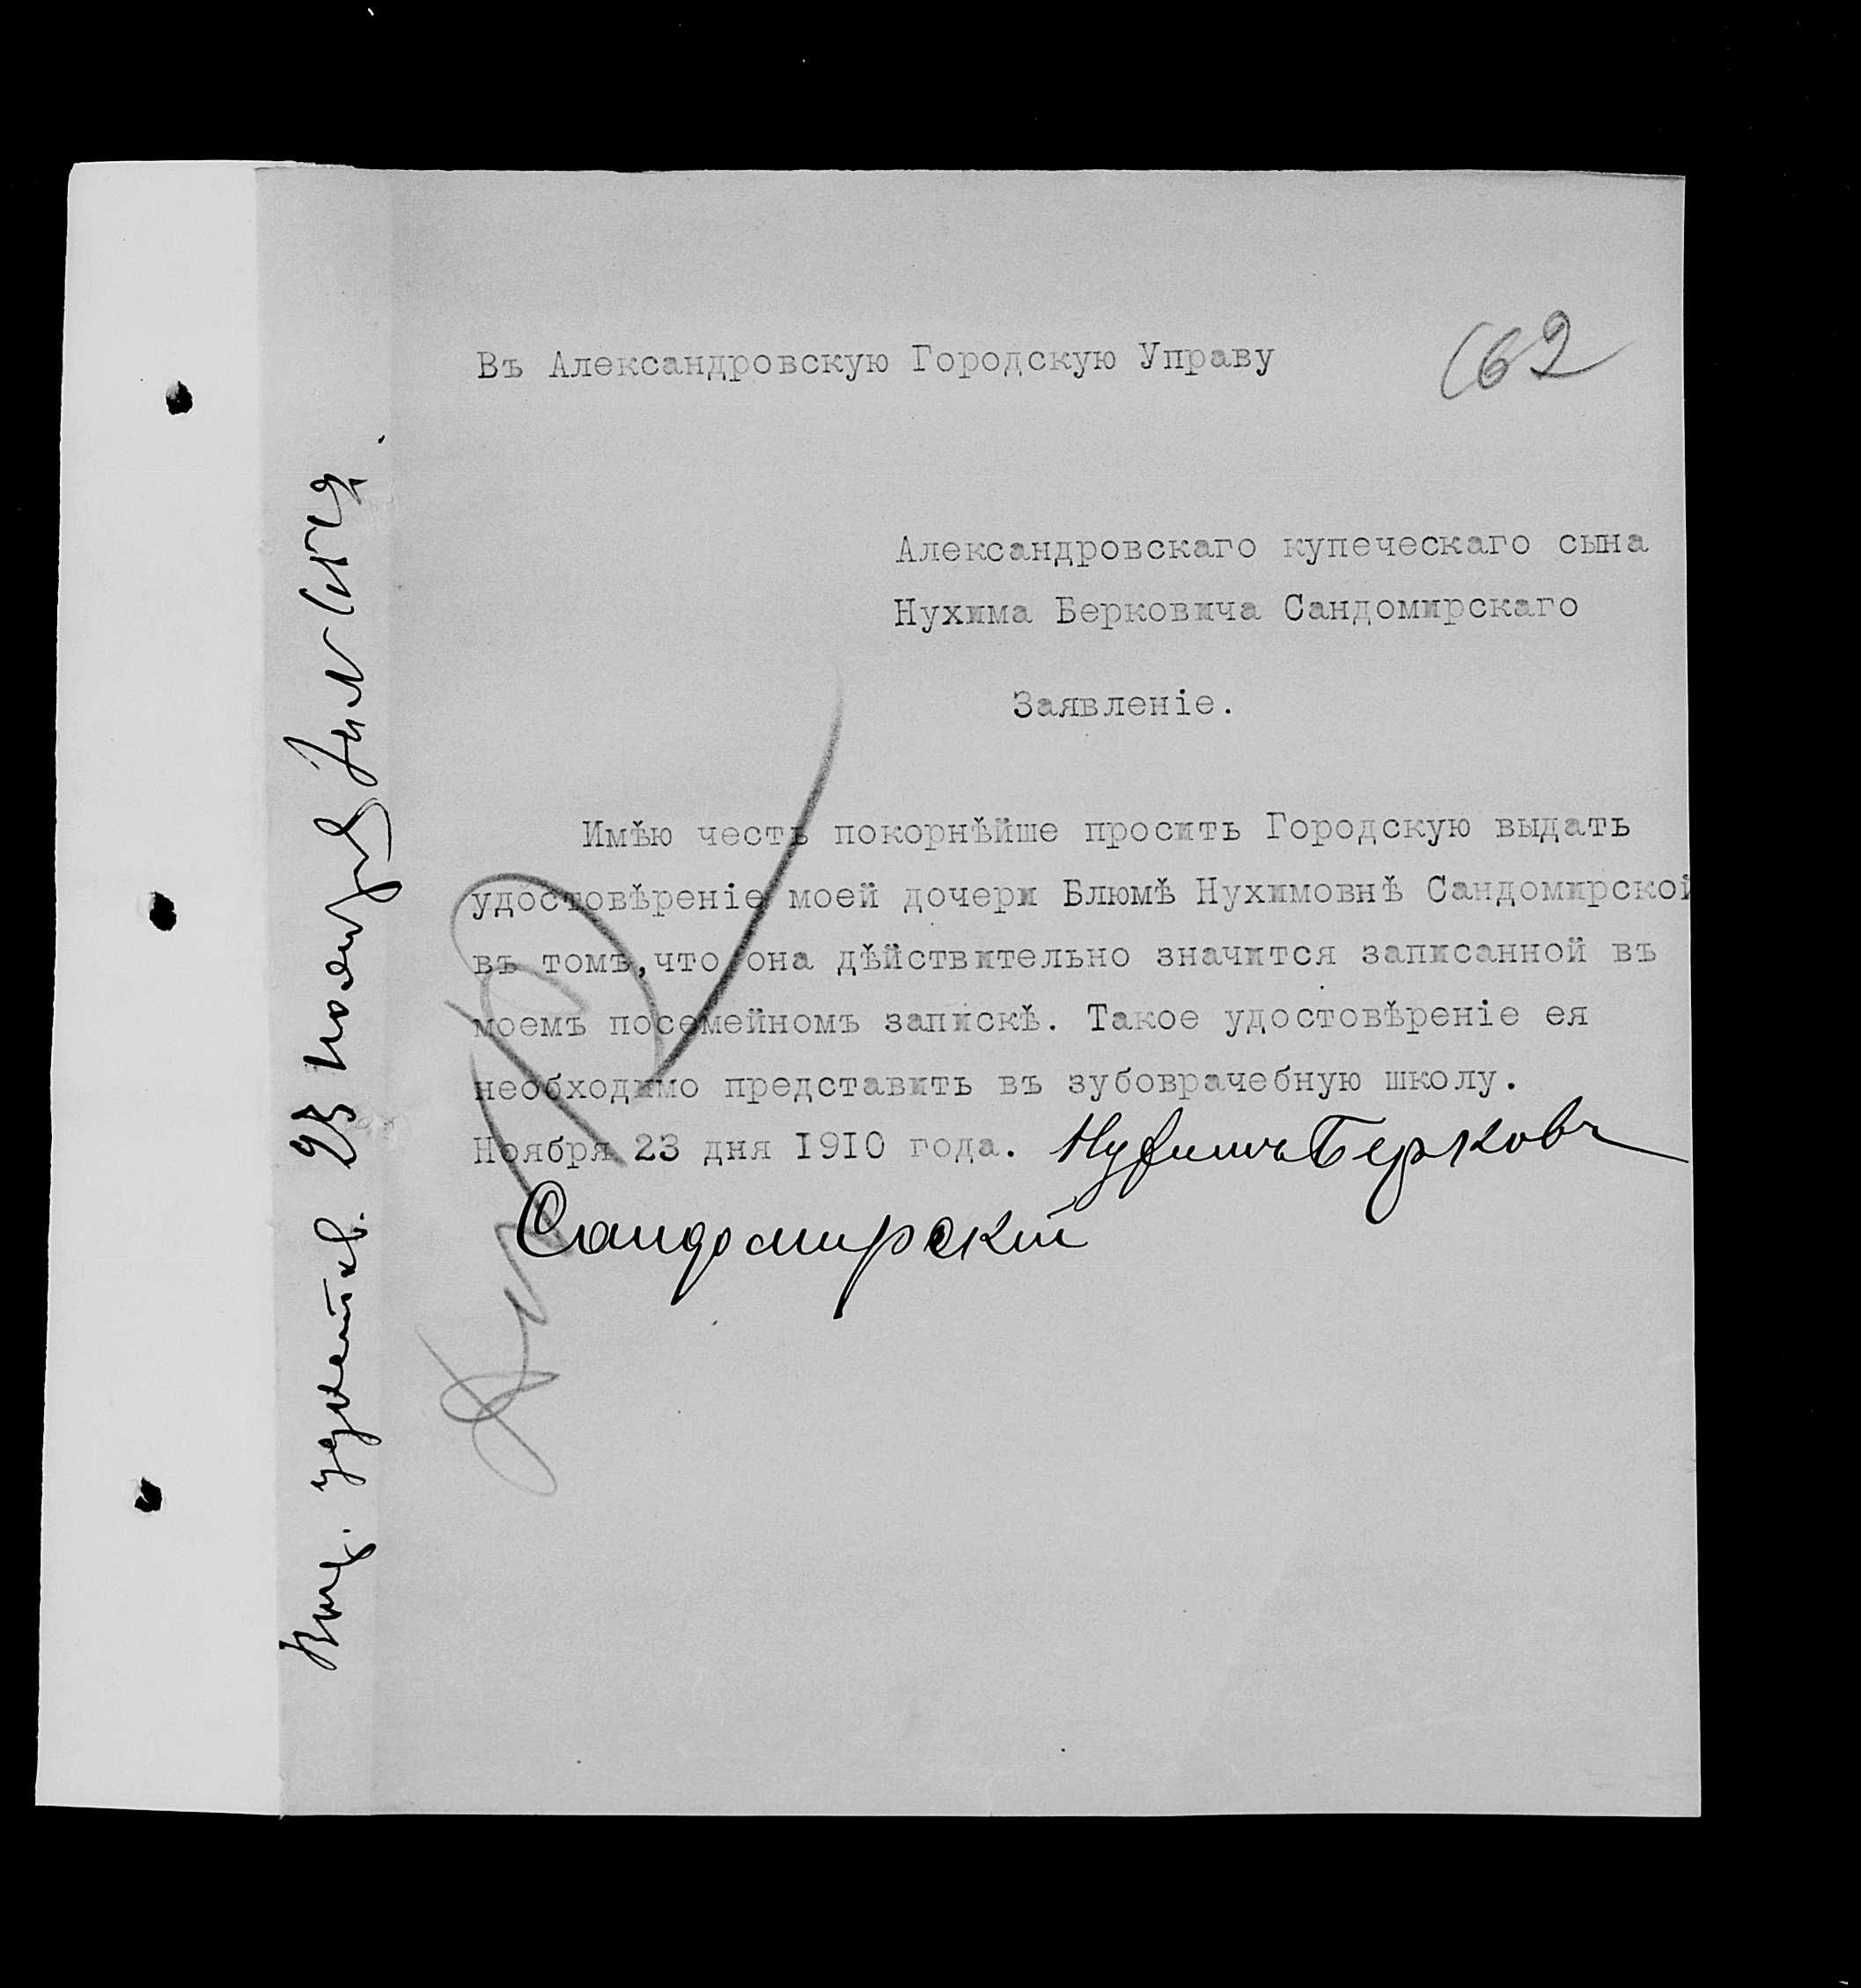 Въ Александровскую Городскую Управу
162
Александровскаго купеческаго сына
Нухима Берковича Сандомирскаго
Заявленіе.
Имѣю честь покорнѣйше просить Городскую выдать
удостовѣреніе моей дочери Блюмѣ Нухимовнѣ Сандомирской
въ томъ,что она дѣйствительно значится записанной въ
моемъ посемейномъ запискѣ. Такое удостовѣреніе ея
необходимо представить въ зубоврачебную школу.
Ноября 23 дня 1910 года. Нухимъ Берковъ
Сандомирскій
23 Ноября